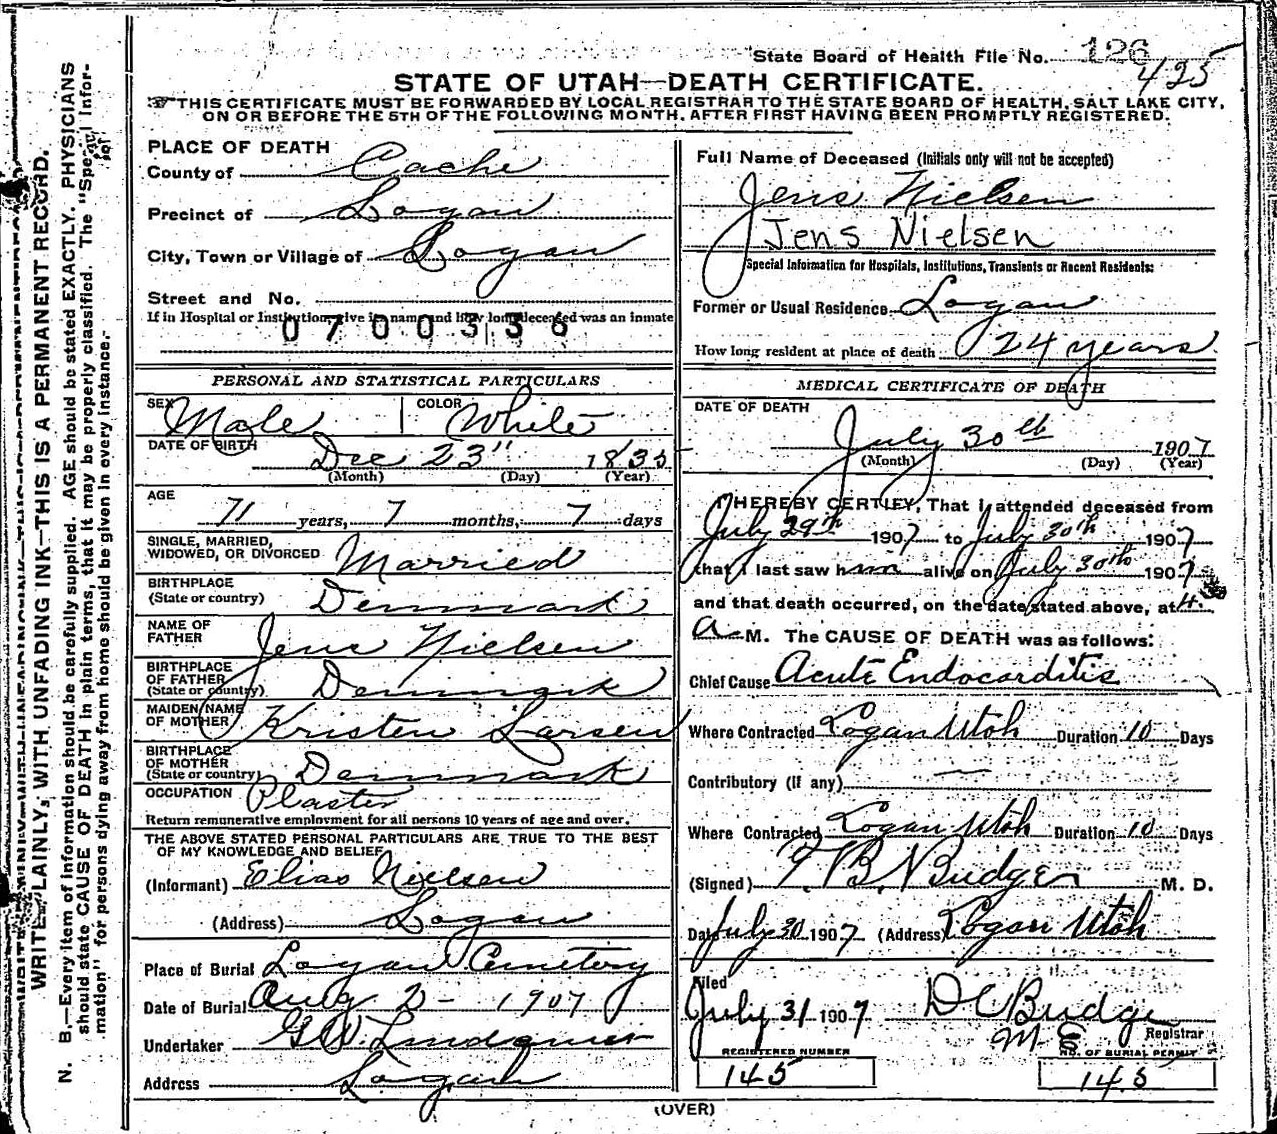 State Board of Health File No. 126
425
STATE OF UTAH—DEATH CERTIFICATE.
THIS CERTIFICATE MUST BE FORWARDED BY LOCAL REGISTRAR TO THE STATE BOARD OF HEALTH, SALT LAKE CITY,
ON OR BEFORE THE 5TH OF THE FOLLOWING MONTH, AFTER FIRST HAVING BEEN PROMPTLY REGISTERED.
PLACE OF DEATH
County of Cache
Precinct of Logan
City, Town or Village of Logan
Street and No.
If in Hospital or Institution give its name and how long deceased was an inmate
0700336
PERSONAL AND STATISTICAL PARTICULARS
SEX Male COLOR White
DATE OF BIRTH Dec 23" 1835
(Month) (Day) (Year)
AGE
71 years, 7 months, 7 days
SINGLE, MARRIED,
WIDOWED, OR DIVORCED Married
BIRTHPLACE
(State or country) Denmark
NAME OF
FATHER Jens Nielsen
BIRTHPLACE
OF FATHER
(State or country) Denmark
MAIDEN NAME
OF MOTHER Kristen Larsen
BIRTHPLACE
OF MOTHER
(State or country) Denmark
OCCUPATION Plaster
Return remunerative employment for all persons 10 years of age and over.
THE ABOVE STATED PERSONAL PARTICULARS ARE TRUE TO THE BEST
OF MY KNOWLEDGE AND BELIEF
(Informant) Elias Nielsen
(Address) Logan
Place of Burial Logan Cemetery
Date of Burial Aug 2- 1907
Undertaker G W. Lindquist
Address Logan
Full Name of Deceased (Initials only will not be accepted)
Jens Nielsen
Jens Nielsen
Special Information for Hospitals, Institutions, Transients or Recent Residents:
Former or Usual Residence Logan
How long resident at place of death 24 years
MEDICAL CERTIFICATE OF DEATH
DATE OF DEATH
July 30th 1907
(Month) (Day) (Year)
I HEREBY CERTIFY, That I attended deceased from
July 29th 1907 to July 30th 1907
that I last saw him alive on July 30th 1907
and that death occurred, on the date stated above, at 4
A M. The CAUSE OF DEATH was as follows:
Chief Cause Acute Endocarditis
Where Contracted Logan Utah Duration 10 Days
Contributory (if any) —
Where Contracted Logan Utah Duration 10 Days
(Signed) T. B. Budge M. D.
Date July 30 1907 (Address) Logan Utah
Filed
July 31 1907 D C Budge
Registrar
REGISTERED NUMBER
145
NO. OF BURIAL PERMIT
145
(OVER)
WRITE PLAINLY, WITH UNFADING INK—THIS IS A PERMANENT RECORD.
N. B.—Every item of information should be carefully supplied. AGE should be stated EXACTLY. PHYSICIANS
should state CAUSE OF DEATH in plain terms, that it may be properly classified. The "Special Infor-
mation" for persons dying away from home should be given in every instance.